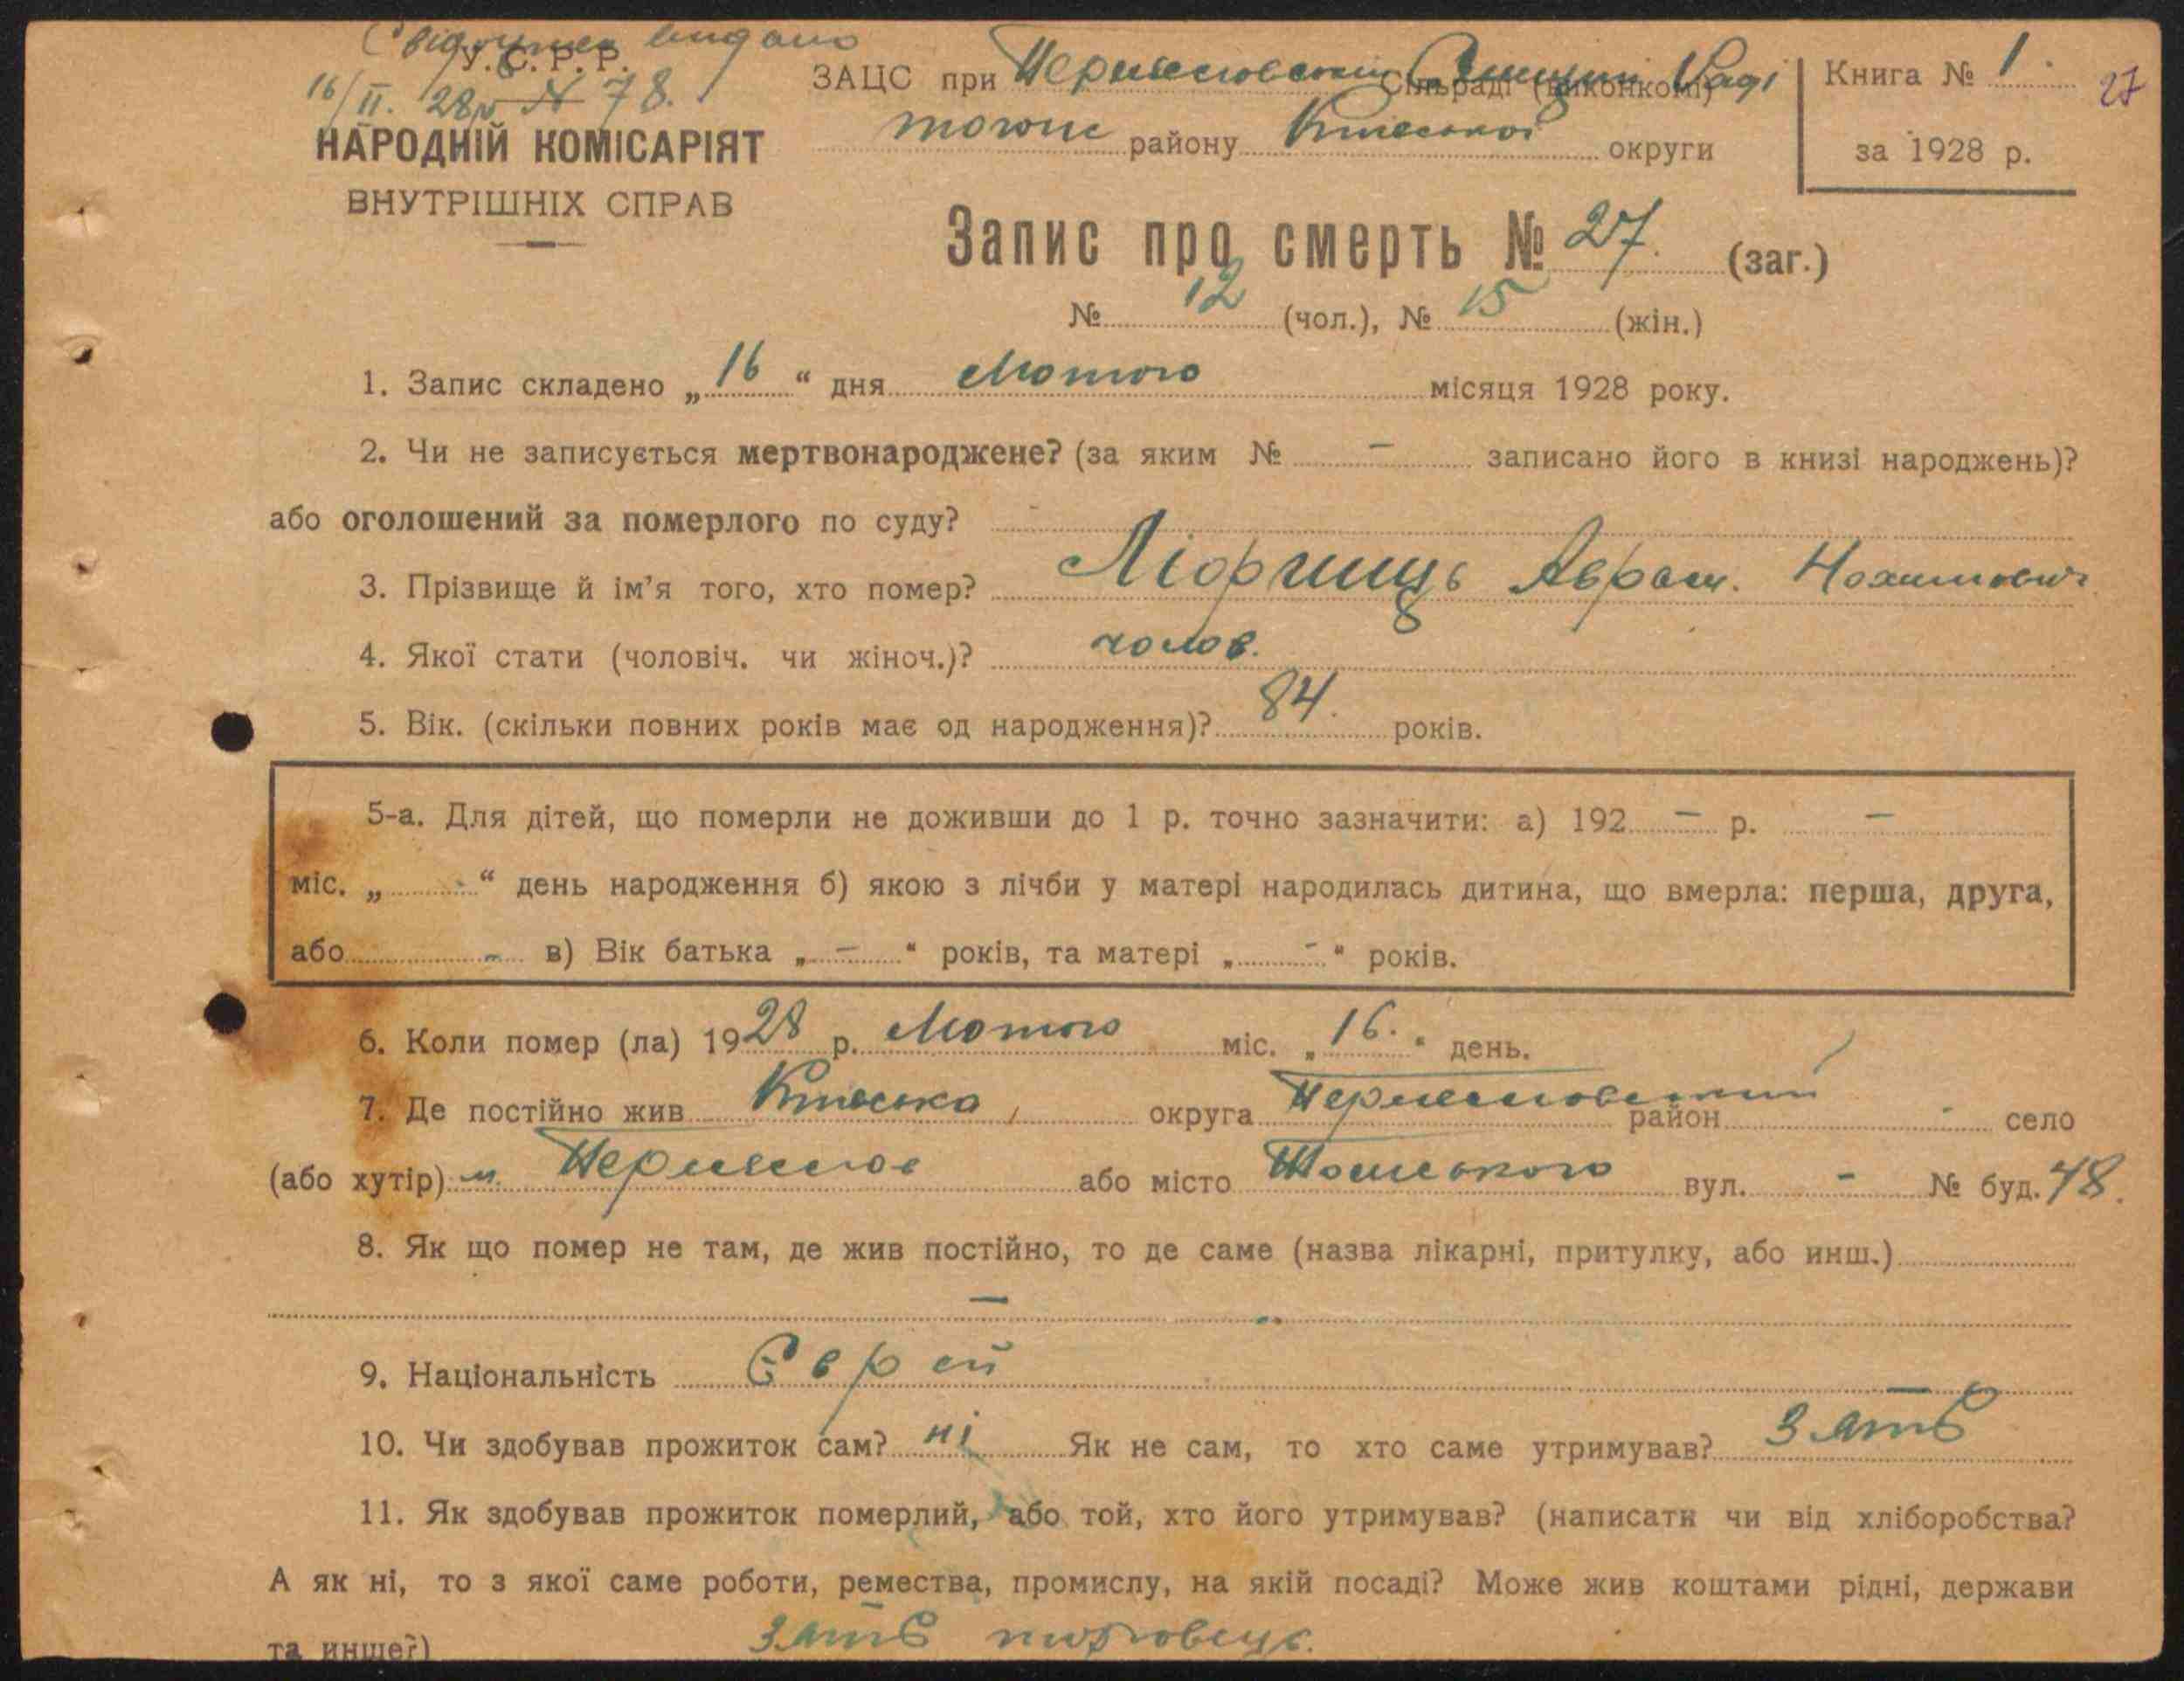 Свідоцтво видано
16/II. 28р № 78.
У. С. Р. Р.
НАРОДНІЙ КОМІСАРІЯТ
ВНУТРІШНІХ СПРАВ
ЗАЦС при Сільраді (виконкомі) Раді
того ж району Київської округи
Книга № 1.
за 1928 р.
27
Запис про смерть № 27. (заг.)
№ 12 (чол.), № 15 (жін.)
1. Запис складено „16“ дня Лютого місяця 1928 року.
2. Чи не записується мертвонароджене? (за яким № – записано його в книзі народжень)?
або оголошений за померлого по суду? -
3. Прізвище й ім'я того, хто помер? Аврам. Нохимович
4. Якої стати (чоловіч. чи жіноч.)? чолов.
5. Вік. (скільки повних років має од народження)? 84. років.
5-а. Для дітей, що померли не доживши до 1 р. точно зазначити: а) 192 – р. –
міс. „ - “ день народження б) якою з лічби у матері народилась дитина, що вмерла: перша, друга,
або - в) Вік батька „ – “ років, та матері „ - “ років.
6. Коли помер (ла) 1928 р. Лютого міс. „16.“ день.
7. Де постійно жив Київська округа район - село
(або хутір) м. або місто вул. - № буд. 48.
8. Як що помер не там, де жив постійно, то де саме (назва лікарні, притулку, або инш.)
–
9. Національність Єврей
10. Чи здобував прожиток сам? ні Як не сам, то хто саме утримував? Зять
11. Як здобував прожиток померлий, або той, хто його утримував? (написати чи від хліборобства?
А як ні, то з якої саме роботи, ремества, промислу, на якій посаді? Може жив коштами рідні, держави
та инше?) Зять торговець.